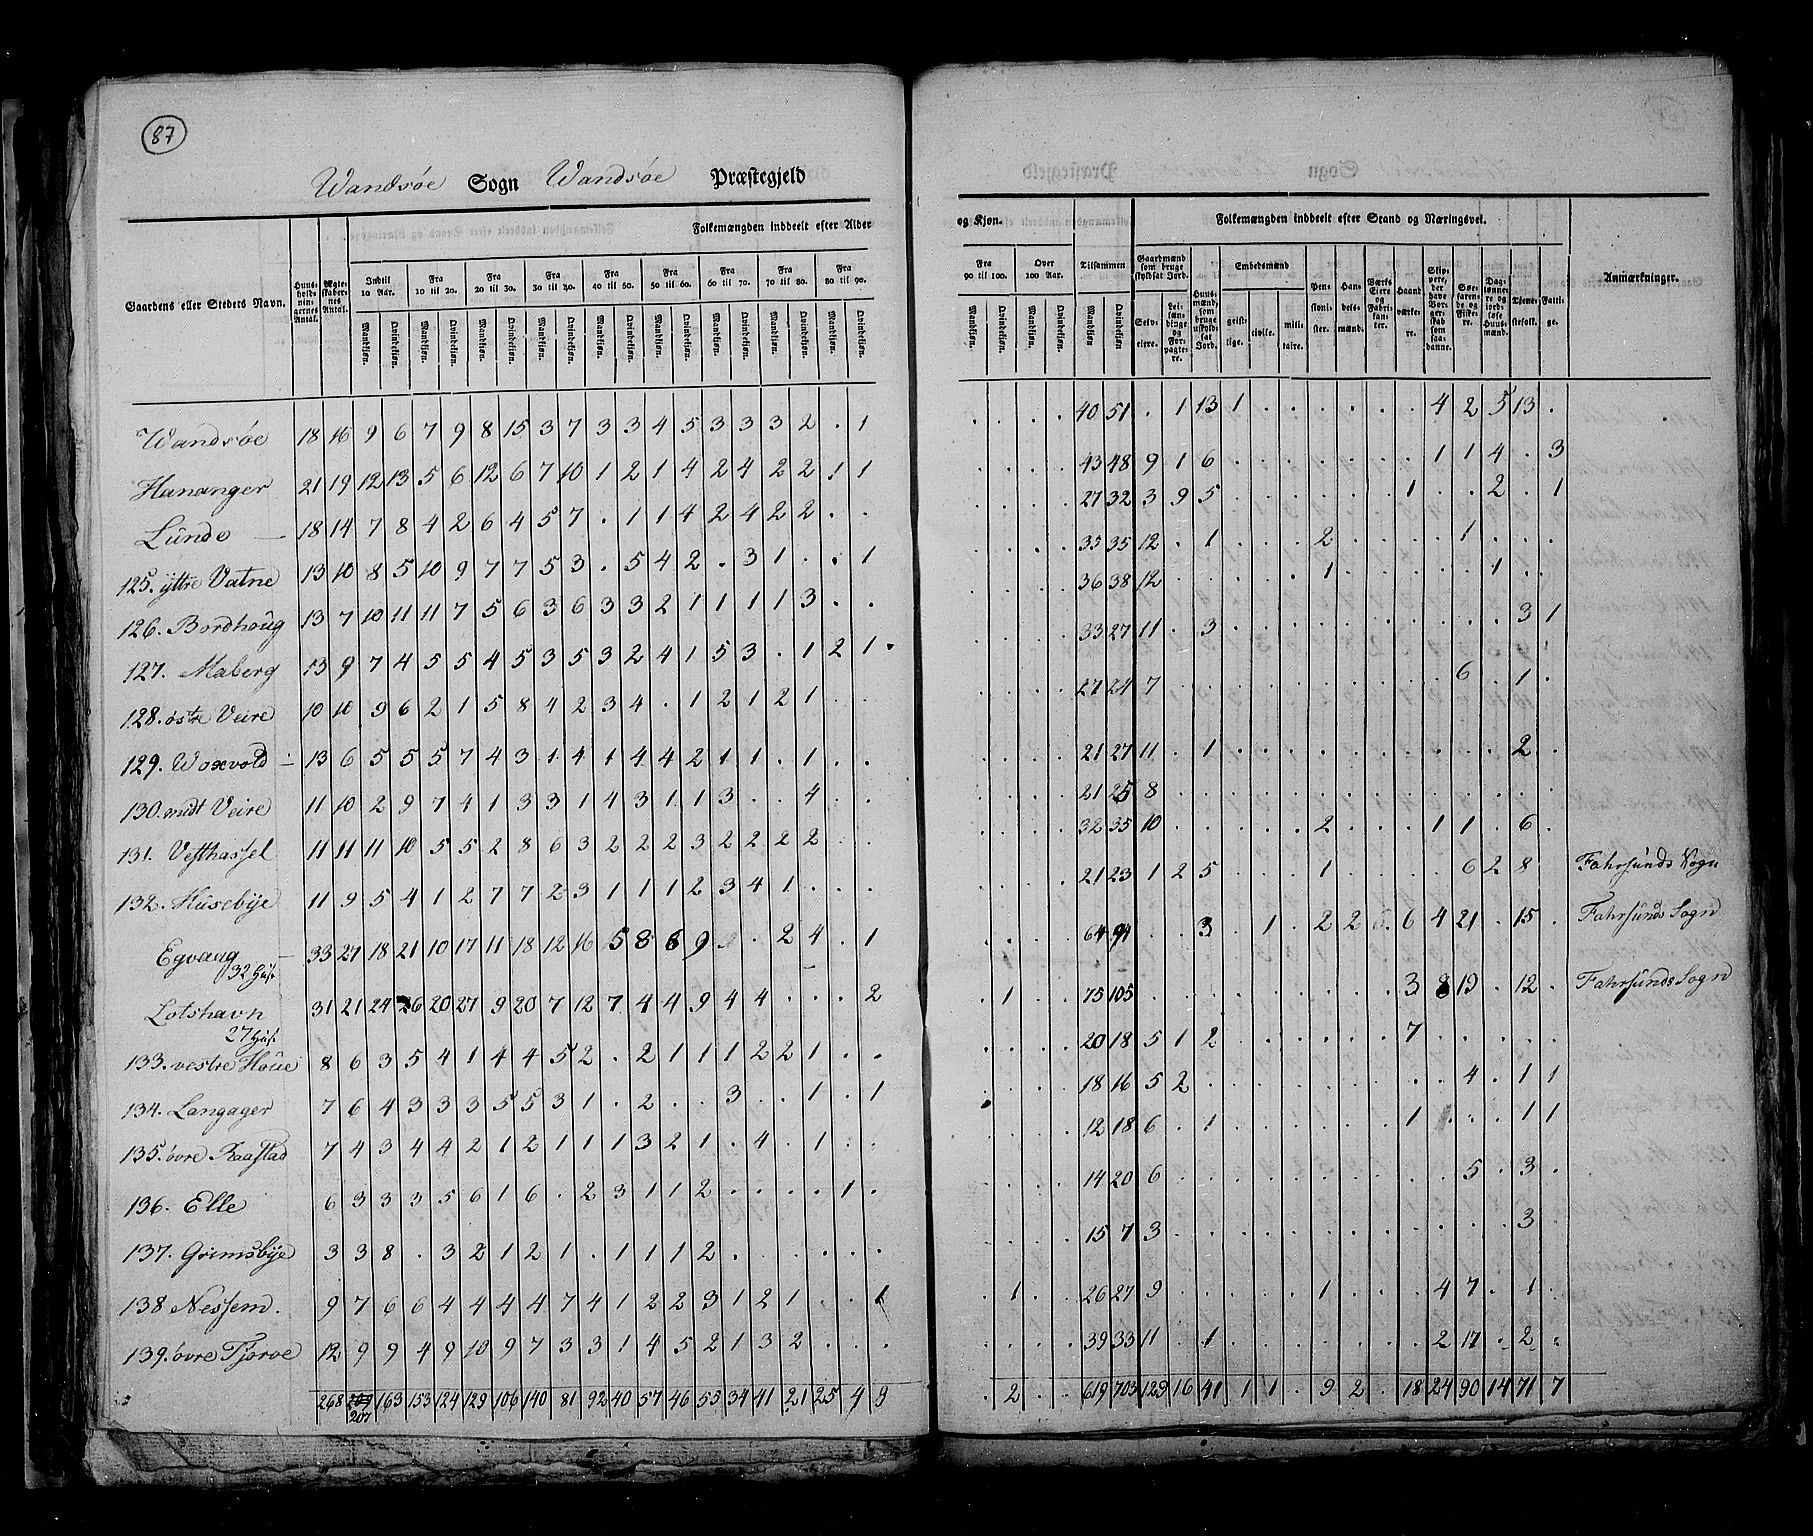 87
Wandsøe Sogn Wandsøe Præstegjeld
Gaardens eller Stedets Navn. Huusholdningernes Antal. Ægteskabernes Antal. Folkemængden inddeelt efter Alder og Kjøn. Tilsammen Folkemængden inddeelt efter Stand og Næringsvei. Anmærkninger.
Indtil 10 Aar. Fra 10 til 20. Fra 20 til 30. Fra 30 til 40. Fra 40 til 50. Fra 50 til 60. Fra 60 til 70. Fra 70 til 80. Fra 80 til 90. Fra 90 til 100. Over 100 Aar.
Mandkjøn. Qvindekjøn.
Gaardmænd som bruge skyldsat Jord. Selveiere. Leilændinge og Forpagtere. Huusmænd, som bruge uskyldsat Jord. Embedsmænd geistlige. civile. militaire. Pensionister. Handelsmænd. Værks Eiere og Fabrikanter. Haandværkere. Skippere, der have Borgerskab som saadanne. Søefarende og Fiskere. Daglønnere og jordløse Huusmænd. Tjenestefolk. Fattige.
Wandsøe 18 16 9 6 7 9 8 15 3 7 3 3 4 5 3 3 3 2 . 1 . . . . 40 51 . 1 13 1 . . . . . . 4 2 5 13 .
Hananger 21 19 12 13 5 6 12 6 7 10 1 2 1 4 2 4 2 2 1 1 . . . . 43 48 9 1 6 . . . . . . . 1 1 4 . 3
Lunde 18 14 7 8 4 2 6 4 5 7 . 1 1 4 2 4 2 2 . . . . . . 27 32 3 9 5 . . . . . . 1 . . 2 . 1
125. yttre Vatne 13 10 8 5 10 9 7 7 5 3 . 5 4 2 . 3 1 . . 1 . . . . 33 35 12 . 1 . . . 2 . . . . 1 . . .
126. Bordhoug 13 7 10 11 11 7 5 6 3 6 3 3 2 1 1 1 1 3 . . . . . . 36 38 12 . . . . . 1 . . . . . 1 . .
127. Maberg 13 9 7 4 5 5 4 5 3 5 3 2 4 1 5 3 . 1 2 1 . . . . 33 27 11 . 3 . . . . . . . . . . 3 1
128. östre Veire 10 10 9 6 2 1 5 8 4 2 3 4 . 1 2 1 2 1 . . . . . . 27 24 7 . . . . . . . . . . 6 . 1 .
129. Woxvold 13 6 5 5 5 7 4 3 1 4 1 4 4 2 1 1 . 1 . . . . . . 21 27 11 . 1 . . . . . . . . . . 2 .
130. midt Veire 11 10 2 9 7 4 1 3 3 1 4 3 1 1 3 . . 4 . . . . . . 21 25 8 . . . . . . . . . . . . . .
131. Vesthassel 11 11 11 10 5 5 2 8 6 3 2 2 2 3 2 2 2 2 . . . . . . 32 35 10 . . . . . 2 . . . 1 1 . 6 .
132. Husebije 11 9 5 4 1 2 7 7 2 3 1 1 1 2 3 4 1 . . . . . . . 21 23 1 2 5 . . . 1 . . . . 6 2 8 Fahrsunds Sogn
Egvaag 33 27 18 21 10 17 11 18 12 16 5 8 6 9 . . 2 4 . 1 . . . . 64 94 . . 3 . 1 . 2 2 . 6 4 21 . 15 . Fahrsunds Sogn
32 Huse
Lotshavn 31 21 24 26 20 27 9 20 7 12 7 4 4 9 4 4 . . . 2 . 1 . . 75 105 . . . . . . . . . 3 8 19 . 12 . Fahrsunds Sogn
27 Huse
133. vestre Houe 8 6 3 5 4 1 4 4 5 2 . 2 1 1 1 2 2 1 . . . . . . 20 18 5 1 2 . . . . . . 7 . . . . .
134. Langager 7 6 4 3 3 3 5 5 3 1 . 2 . . 3 . . 1 . 1 . . . . 18 16 5 2 . . . . . . . . . 4 . 1 1
135. övre Raastad 7 4 3 4 4 2 1 2 1 1 1 3 2 1 . 4 . 1 . . . . . . 12 18 6 . 1 . . . . . . 1 . . . 1 1
136. Elle 6 3 3 3 5 6 1 6 . 2 3 1 1 2 . . . . 1 . . . . . 14 20 6 . . . . . . . . . . 5 . 3 .
137. Grimsbije 3 3 8 . 3 2 1 2 1 . 1 1 1 2 . . . . . . . . . . 15 7 3 . . . . . . . . . . . . 3
138 Nessem. 9 7 6 6 4 4 4 4 7 4 1 2 2 3 1 2 1 . . 1 . 1 . . 26 27 9 . . . . . 1 . . . 4 7 . 1 .
139. övre Tjorve 12 9 9 4 9 10 9 7 3 3 1 4 5 2 1 3 2 . . . . . . . 39 33 11 . 1 . . . . . . . 2 17 . 2 .
268 207 163 153 124 129 106 140 81 92 40 57 46 55 34 41 21 25 4 9 . 2 . . 619 703 129 16 41 1 1 . 9 2 . 18 24 90 14 71 7